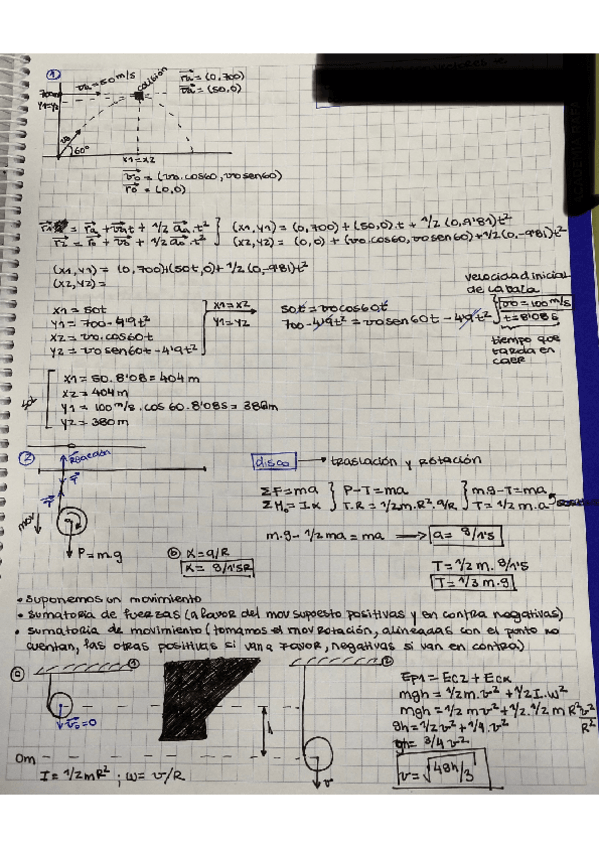 ①
700
y1=y2
va=50 m/s
colisión
ra = (0,700)
va = (50,0)
vo
60°
x1=x2
vo = (vo.cos60, vo sen60)
ro = (0,0)
= ra + va t + 1/2 aa . t² } (x1,y1) = (0,700) + (50,0).t + 1/2 (0,9'81)t²
r2 = ro + vo + 1/2 ao . t² } (x2,y2) = (0,0) + (vo.cos60, vo sen60) + 1/2 (0,-9'81)t²
(x1,y1) = (0,700)+(50t,0)+ 1/2 (0,-9'81)t²
(x2,y2) =
velocidad inicial
de la bala
x1 = 50t
y1 = 700-4'9t²
x2 = vo.cos60t
y2 = vo sen60t-4'9t²
x1=x2
y1=y2
50t = vo cos60t
700-4'9t² = vo sen60t - 4'9t²
vo=100 m/s
t=8'08s
tiempo que
tarda en
caer
sol
x1 = 50.8'08 = 404m
x2 = 404m
y1 = 100 m/s . cos 60 . 8'08s = 380m
y2 = 380m
②
Reacción
T
T
mov
P=m.g
disco → traslación y rotación
ΣF=ma } P-T=ma } m.g-T=ma
ΣM0=Iα } T.R = 1/2m.R².a/R } T = 1/2 m.a
m.g-1/2ma=ma → a = g/1'5
ⓑ α=a/R
α = g/1'5R
T= 1/2 m. g/1'5
T= 1/3 m.g
• Suponemos un movimiento
• Sumatoria de fuerzas (a favor del mov supuesto positivas y en contra negativas)
• Sumatoria de movimiento (tomamos el mov rotación, alineadas con el punto no
cuentan, las otras positivas si van a favor, negativas si van en contra)
ⓐ
①
vo=0
h
0m
I = 1/2 mR² ; w = v/R
v
Ep1 = Ec2 + Ecα
mgh = 1/2m.v² + 1/2I.w²
mgh = 1/2 mv² + 1/2.1/2 m R² v²/R²
gh = 1/2 v² + 1/4.v²
gh = 3/4 v²
v = √4gh/3